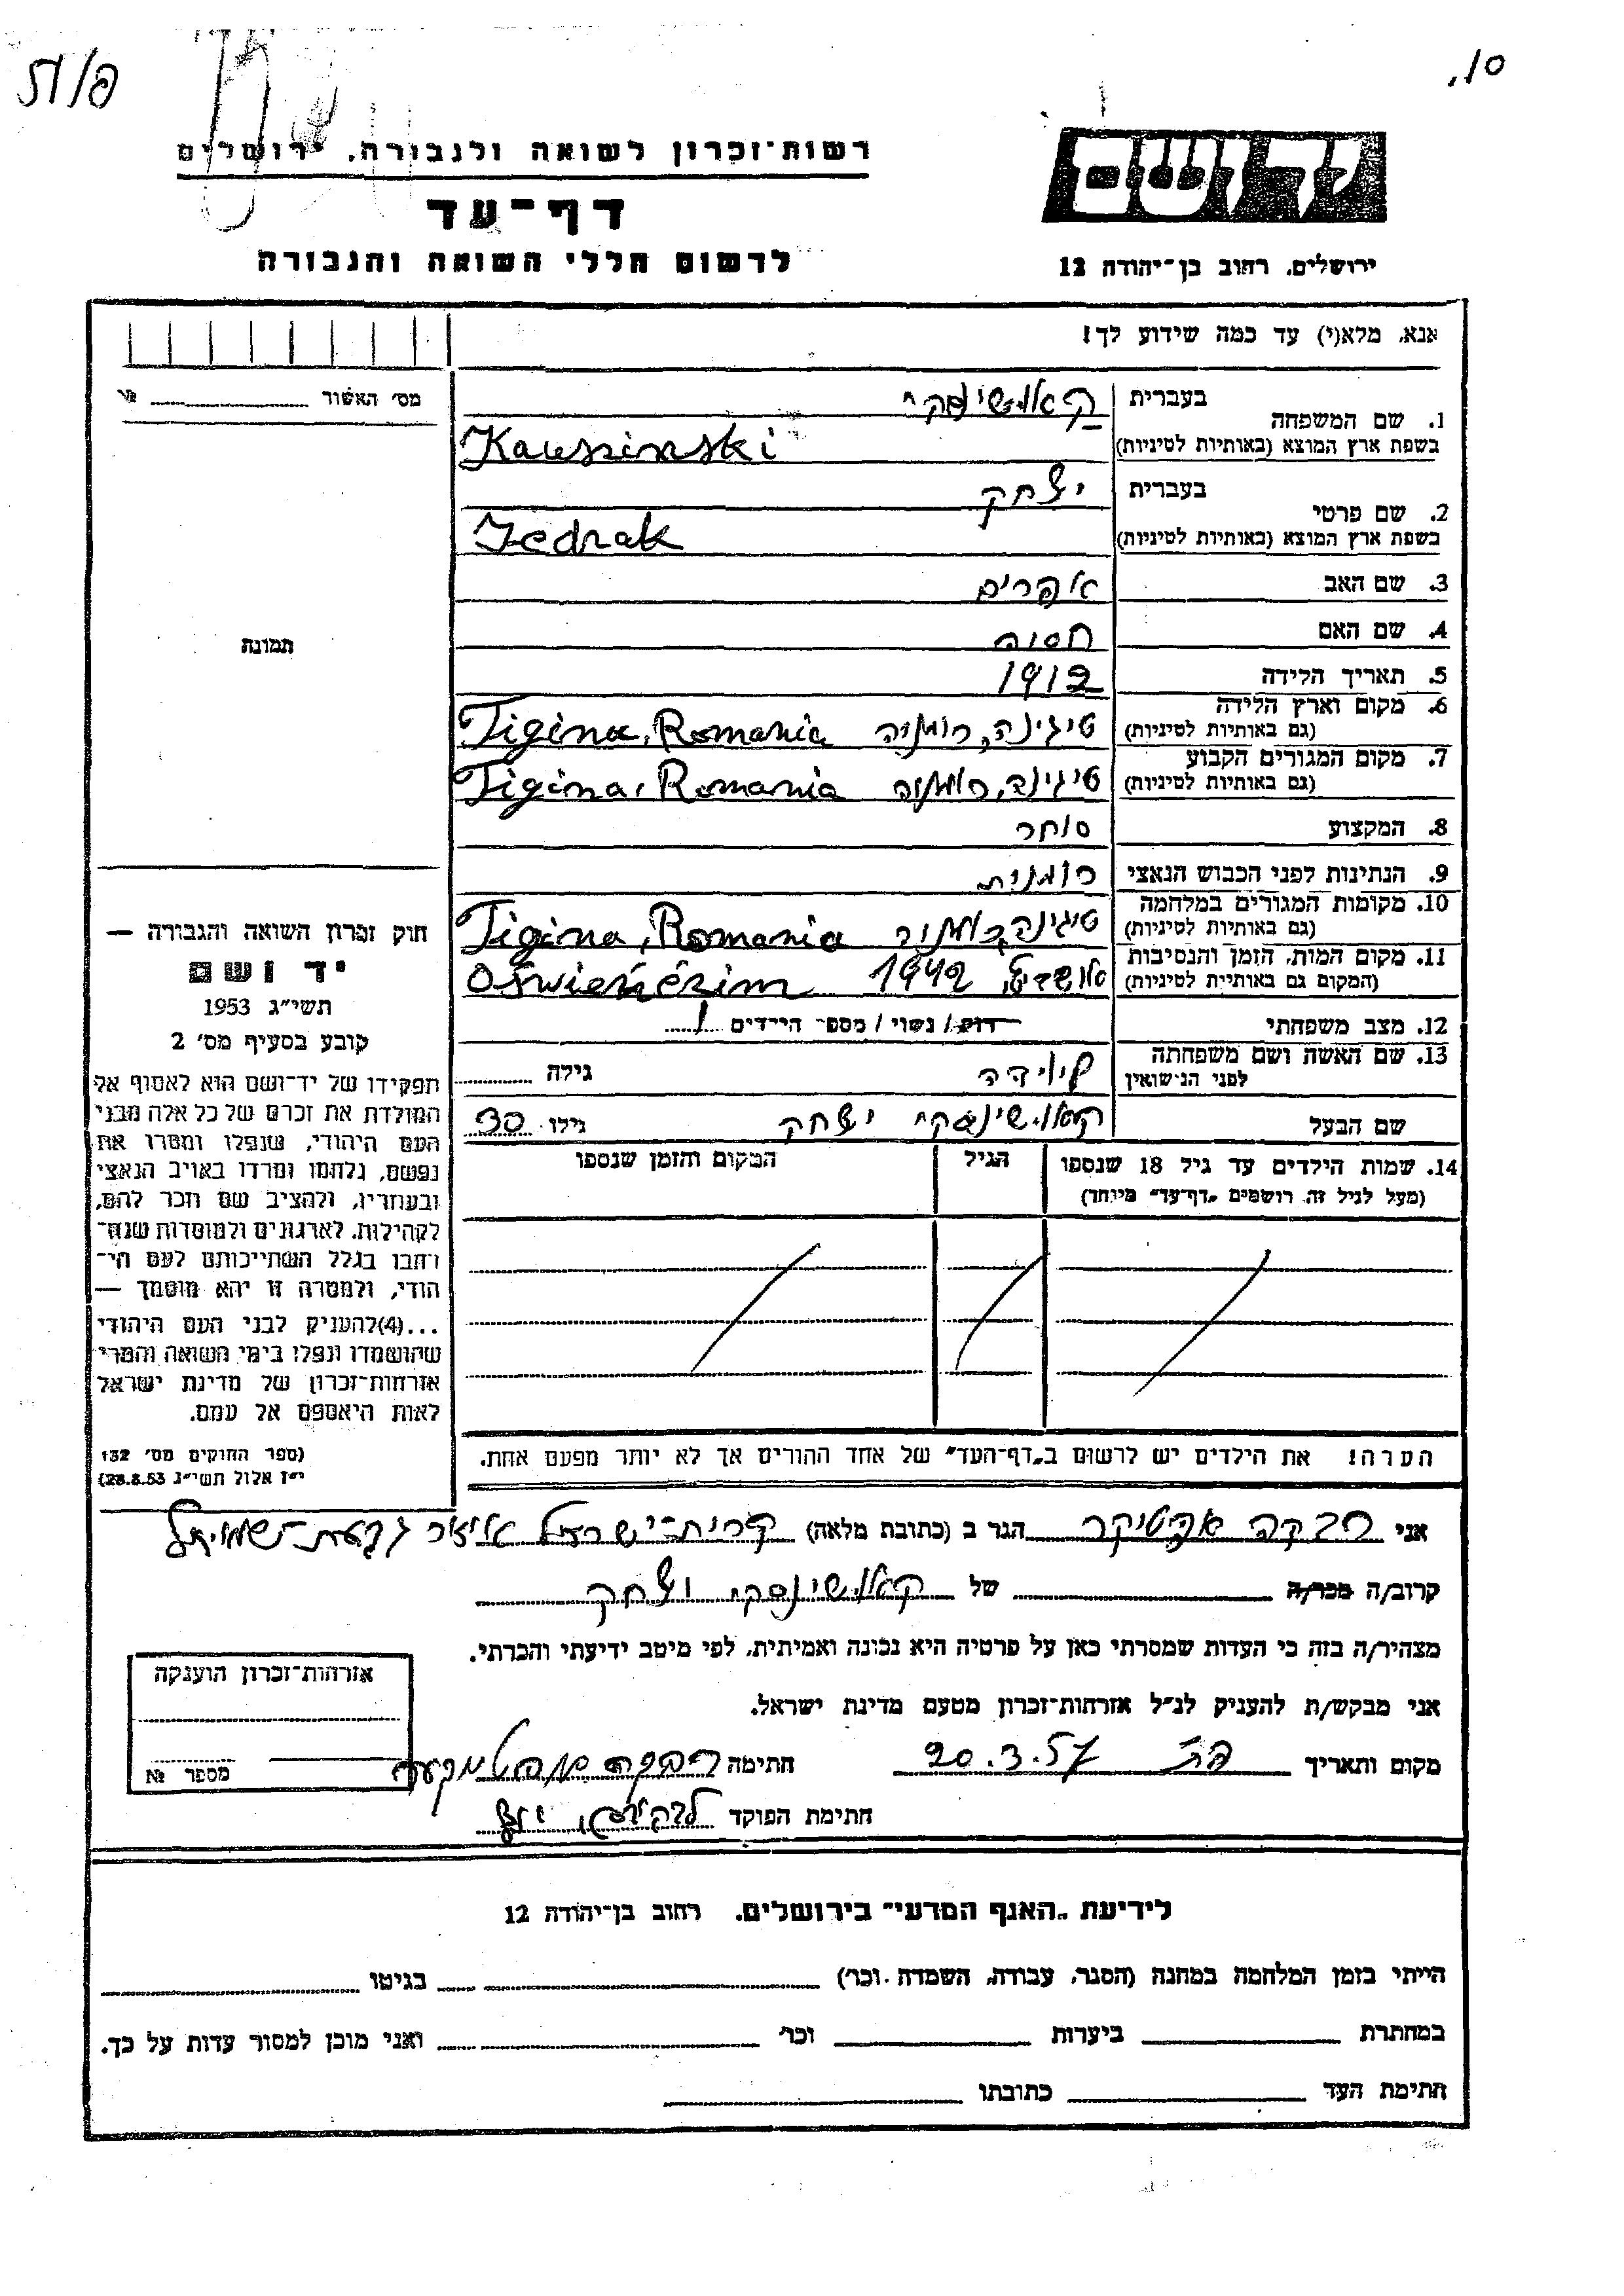 רשות-זכרון לשואה ולגבורה, ירושלים
דף-עד
לרשום חללי השואה והגבורה
יד ושם
ירושלים, רחוב בן-יהודה 12
אנא, מלא(י) עד כמה שידוע לך!
מס' האשור № 
1. שם המשפחה בעברית קאושינסקי
בשפת ארץ המוצא (באותיות לטיניות) Kauszinski
2. שם פרטי בעברית יצחק
בשפת ארץ המוצא (באותיות לטיניות) Jedrak
3. שם האב אפרים
4. שם האם חסיה
5. תאריך הלידה 1912
6. מקום וארץ הלידה (גם באותיות לטיניות) טיגינה, רומניה Tigina, Romania
7. מקום המגורים הקבוע (גם באותיות לטיניות) טיגינה, רומניה Tigina, Romania
8. המקצוע סוחר
9. הנתינות לפני הכבוש הנאצי רומנית
10. מקומות המגורים במלחמה (גם באותיות לטיניות) טיגינה, רומניה Tigina, Romania
11. מקום המות, הזמן והנסיבות (המקום גם באותיות לטיניות) 1942
12. מצב משפחתי רווק / נשוי / מספר הילדים 1
13. שם האשה ושם משפחתה לפני הנישואין גילה
שם הבעל קאושינסקי יצחק גילו 30
14. שמות הילדים עד גיל 18 שנספו (מעל לגיל זה רושמים "דף-עד" מיוחד) הגיל המקום והזמן שנספו
הערה! את הילדים יש לרשום ב"דף-העד" של אחד ההורים אך לא יותר מפעם אחת.
תמונה
חוק זכרון השואה והגבורה —
יד ושם
תשי"ג 1953
קובע בסעיף מס' 2
תפקידו של יד-ושם הוא לאסוף אל
המולדת את זכרם של כל אלה מבני
העם היהודי, שנפלו ומסרו את
נפשם, נלחמו ומרדו באויב הנאצי
ובעוזריו, ולהציב שם וזכר להם,
לקהילות, לארגונים ולמוסדות שנח-
רבו בגלל השתייכותם לעם הי-
הודי, ולמטרה זו יהא מוסמך —
...(4)להעניק לבני העם היהודי
שהושמדו ונפלו בימי השואה והמרי
אזרחות-זכרון של מדינת ישראל
לאות היאספם אל עמם.
(ספר החוקים מס' 132
י"ז אלול תשי"ג 28.8.53)
אני רבקה הגר ב (כתובת מלאה) קרית-ישראל
קרוב/ה מכר/ה של קאושינסקי יצחק
מצהיר/ה בזה כי העדות שמסרתי כאן על פרטיה היא נכונה ואמיתית, לפי מיטב ידיעתי והכרתי.
אני מבקש/ת להעניק לנ"ל אזרחות-זכרון מטעם מדינת ישראל.
מקום ותאריך 20.3.57 חתימה רבקה
חתימת הפוקד
אזרחות-זכרון הוענקה
מספר №
לידיעת "האגף המדעי" בירושלים, רחוב בן-יהודה 12
הייתי בזמן המלחמה במחנה (הסגר, עבודה, השמדה וכו') בגיטו
במחתרת ביערות וכו' ואני מוכן למסור עדות על כך.
חתימת העד כתובתו